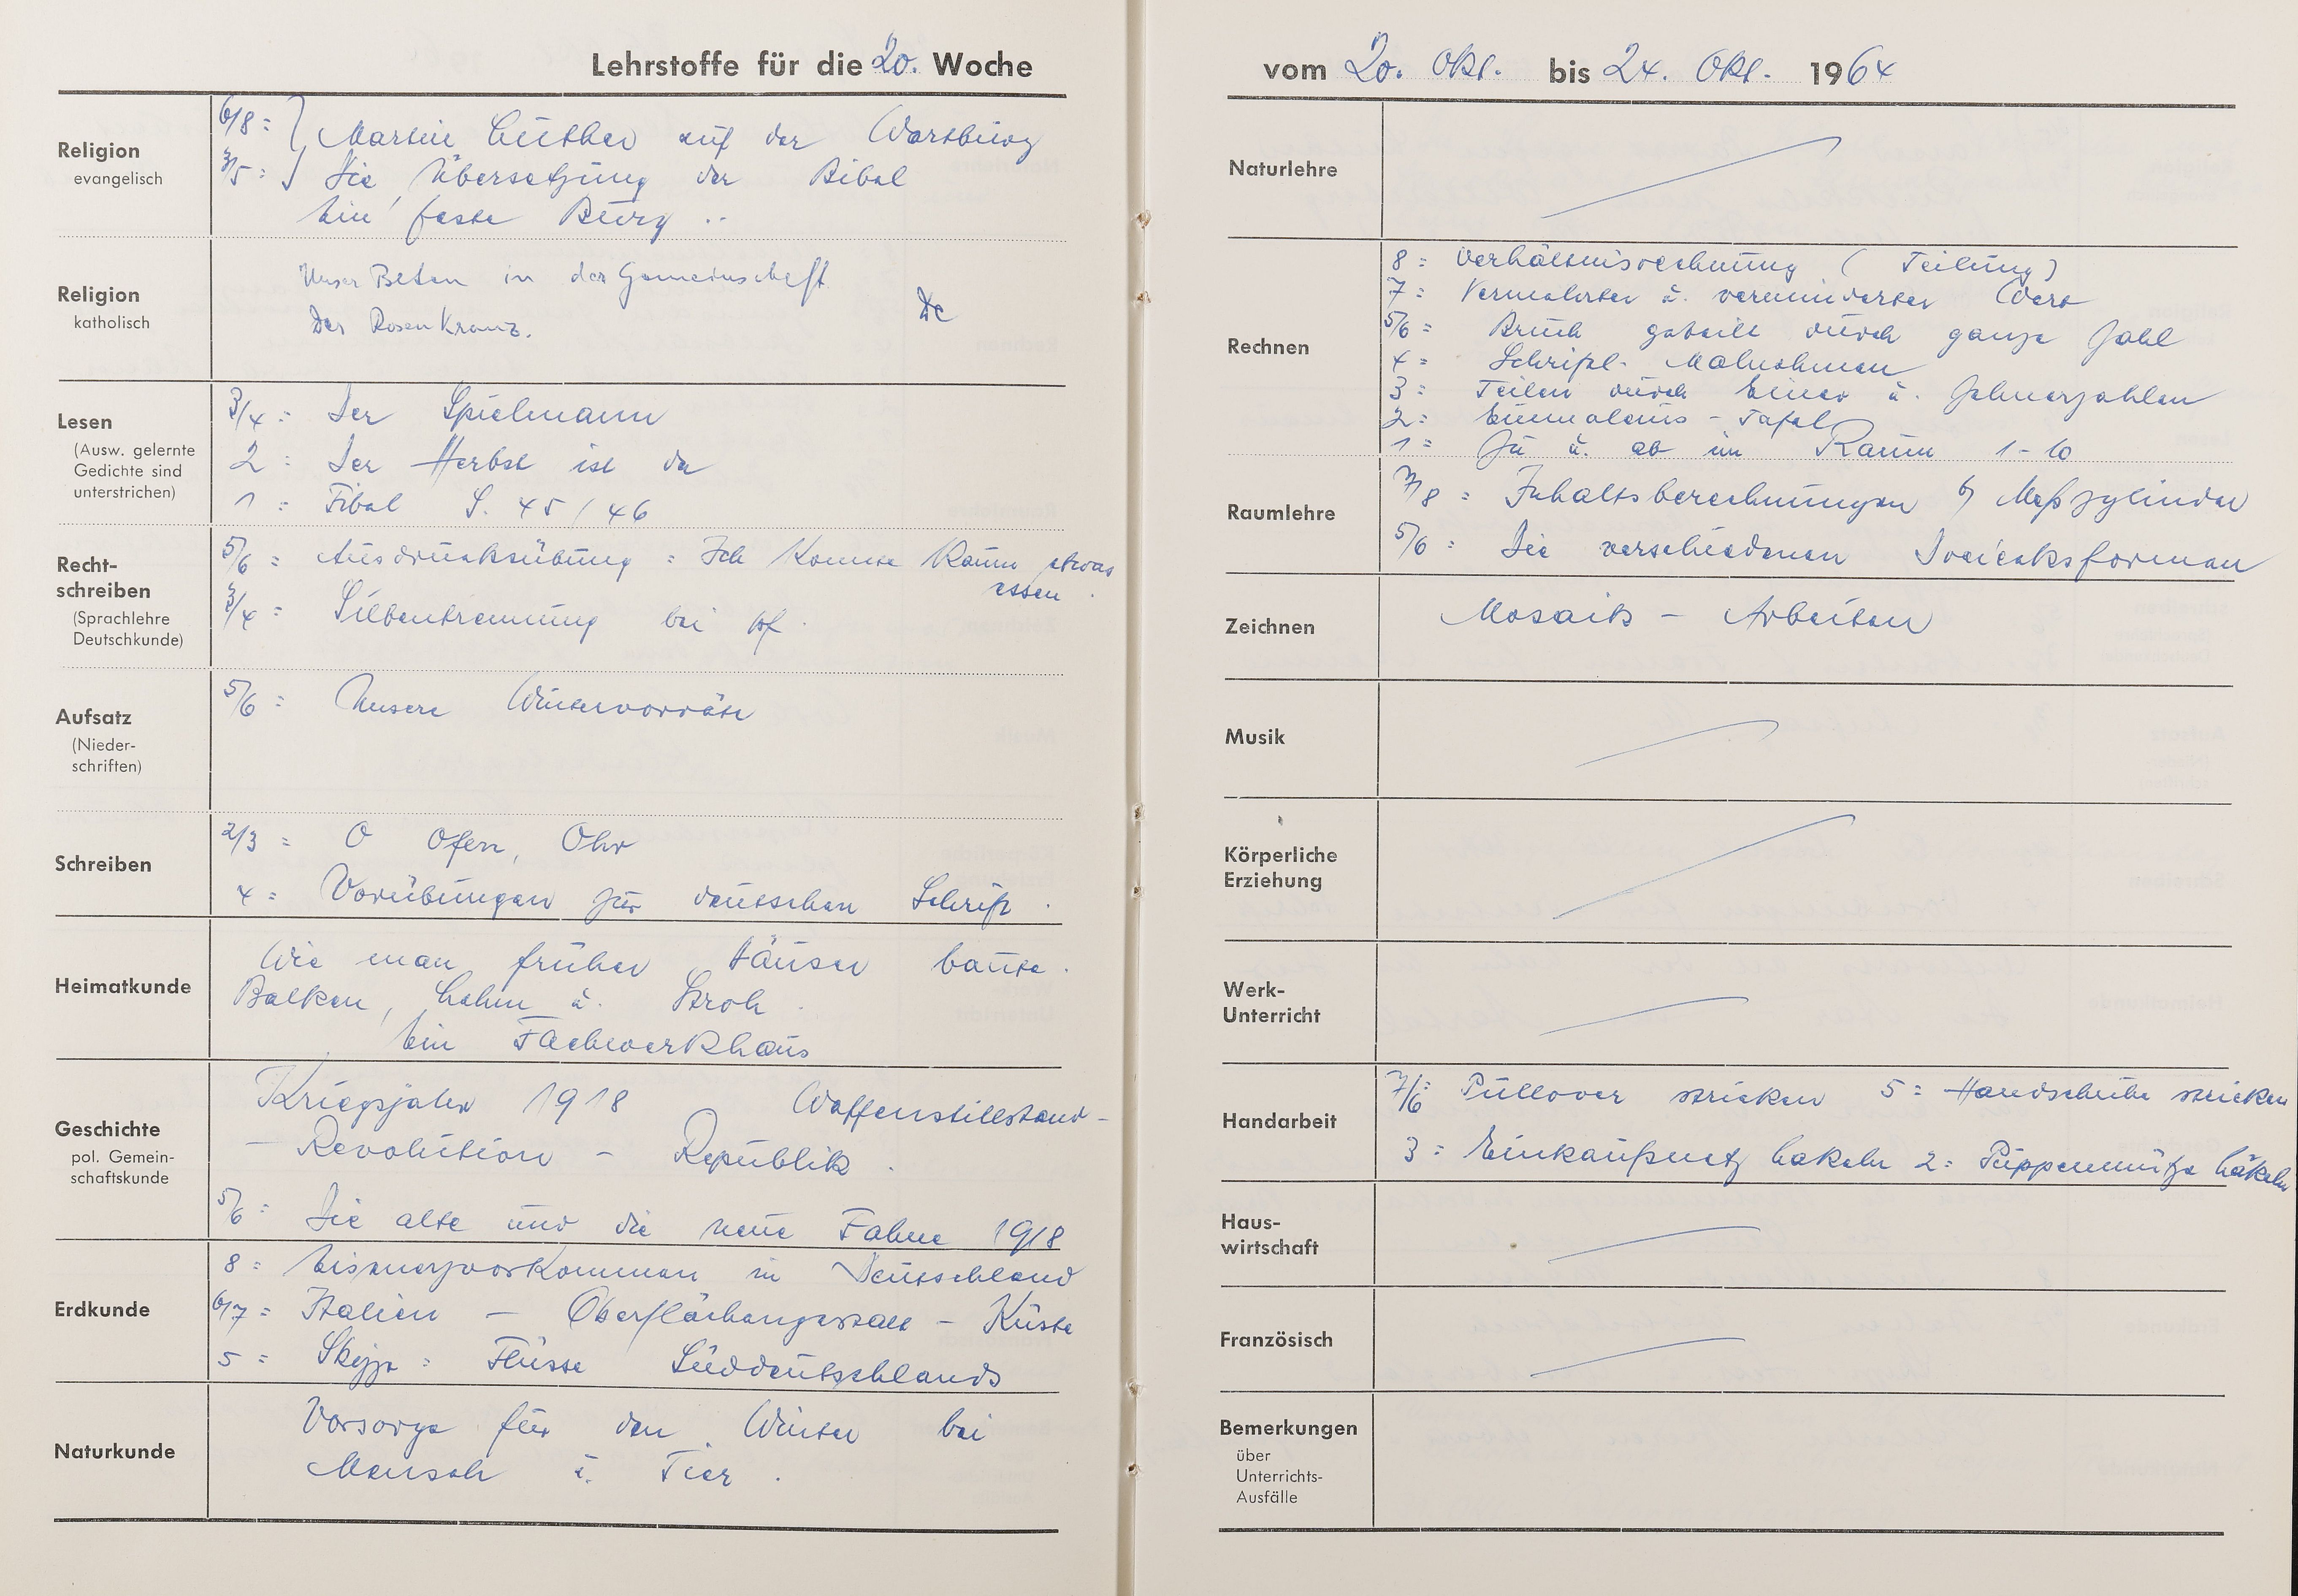 Lehrstoffe für die 20. Woche
Religion
evangelisch
6/8 = } Martin Luther auf der Wartburg
3/5 = } Die Übersetzung der Bibel
Ein' feste Burg ..
Religion
katholisch
Unser Beten in der Gemeinschaft
Der Rosenkranz.
De
Lesen
(Ausw. gelernte
Gedichte sind
unterstrichen)
3/4 = Der Spielmann
2 = Der Herbst ist da
1 = Fibel S. 45/46
Recht-
schreiben
(Sprachlehre
Deutschkunde)
5/6 = Ausdrucksübung = Ich konnte kaum etwas
essen.
3/4 = Silbentrennung bei pf.
Aufsatz
(Nieder-
schriften)
5/6 = Unsere Wintervorräte
Schreiben
2/3 = O Ofen, Ohr
4 = Vorübungen zur deutschen Schrift.
Heimatkunde
Wie man früher Häuser baute.
Balken, Lehm u. Stroh.
Ein Fachwerkhaus
Geschichte
pol. Gemein-
schaftskunde
Kriegsjahr 1918 Waffenstillstand -
- Revolution - Republik.
5/6 = Die alte und die neue Fahne 1918
Erdkunde
8 = Eisenerzvorkommen in Deutschland
6/7 = Italien - Oberflächengestalt - Küste
5 = Skizze = Flüsse Süddeutschlands
Naturkunde
Vorsorge für den Winter bei
Mensch u. Tier.
vom 20. Okt. bis 24. Okt. 1964
Naturlehre
Rechnen
8 = Verhältnisrechnung (Teilung)
7 = Vermehrter u. verminderter Wert
5/6 = Bruch geteilt durch ganze Zahl
4 = Schriftl. Malnehmen
3 = Teilen durch Einer u. Zehnerzahlen
2 = Einmaleins - Tafel
1 = Zu u. ab im Raum 1-10
Raumlehre
7/8 = Inhaltsberechnungen b) Meßzylinder
5/6 = Die verschiedenen Dreiecksformen
Zeichnen
Mosaik - Arbeiten
Musik
Körperliche
Erziehung
Werk-
Unterricht
Handarbeit
7/6 = Pullover stricken 5 = Handschuhe stricken
3 = Einkaufsnetz häkeln 2 = Puppenmütze häkeln
Haus-
wirtschaft
Französisch
Bemerkungen
über
Unterrichts-
Ausfälle